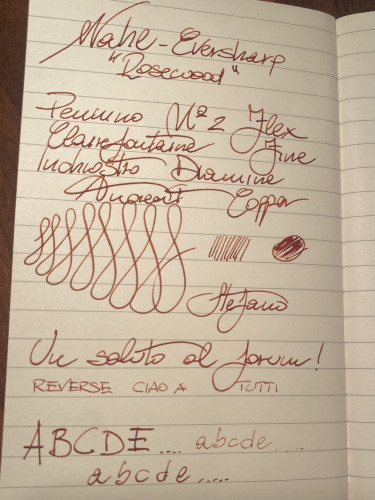 Wahl-Eversharp
"Rosewood"
Pennino Nº 2 Flex
Clairefontaine Fine
Inchiostro Diamine
Ancient Copper
Stefano
Un saluto al forum!
REVERSE CIAO A TUTTI
ABCDE.... abcde.....
abcde.....